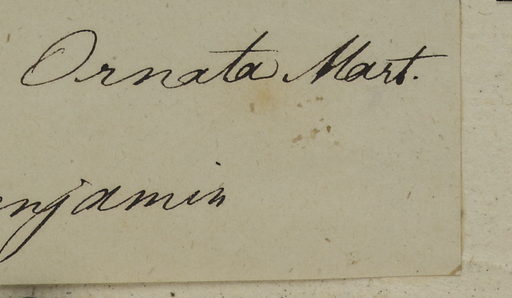 Ornata Mart.
enjamin